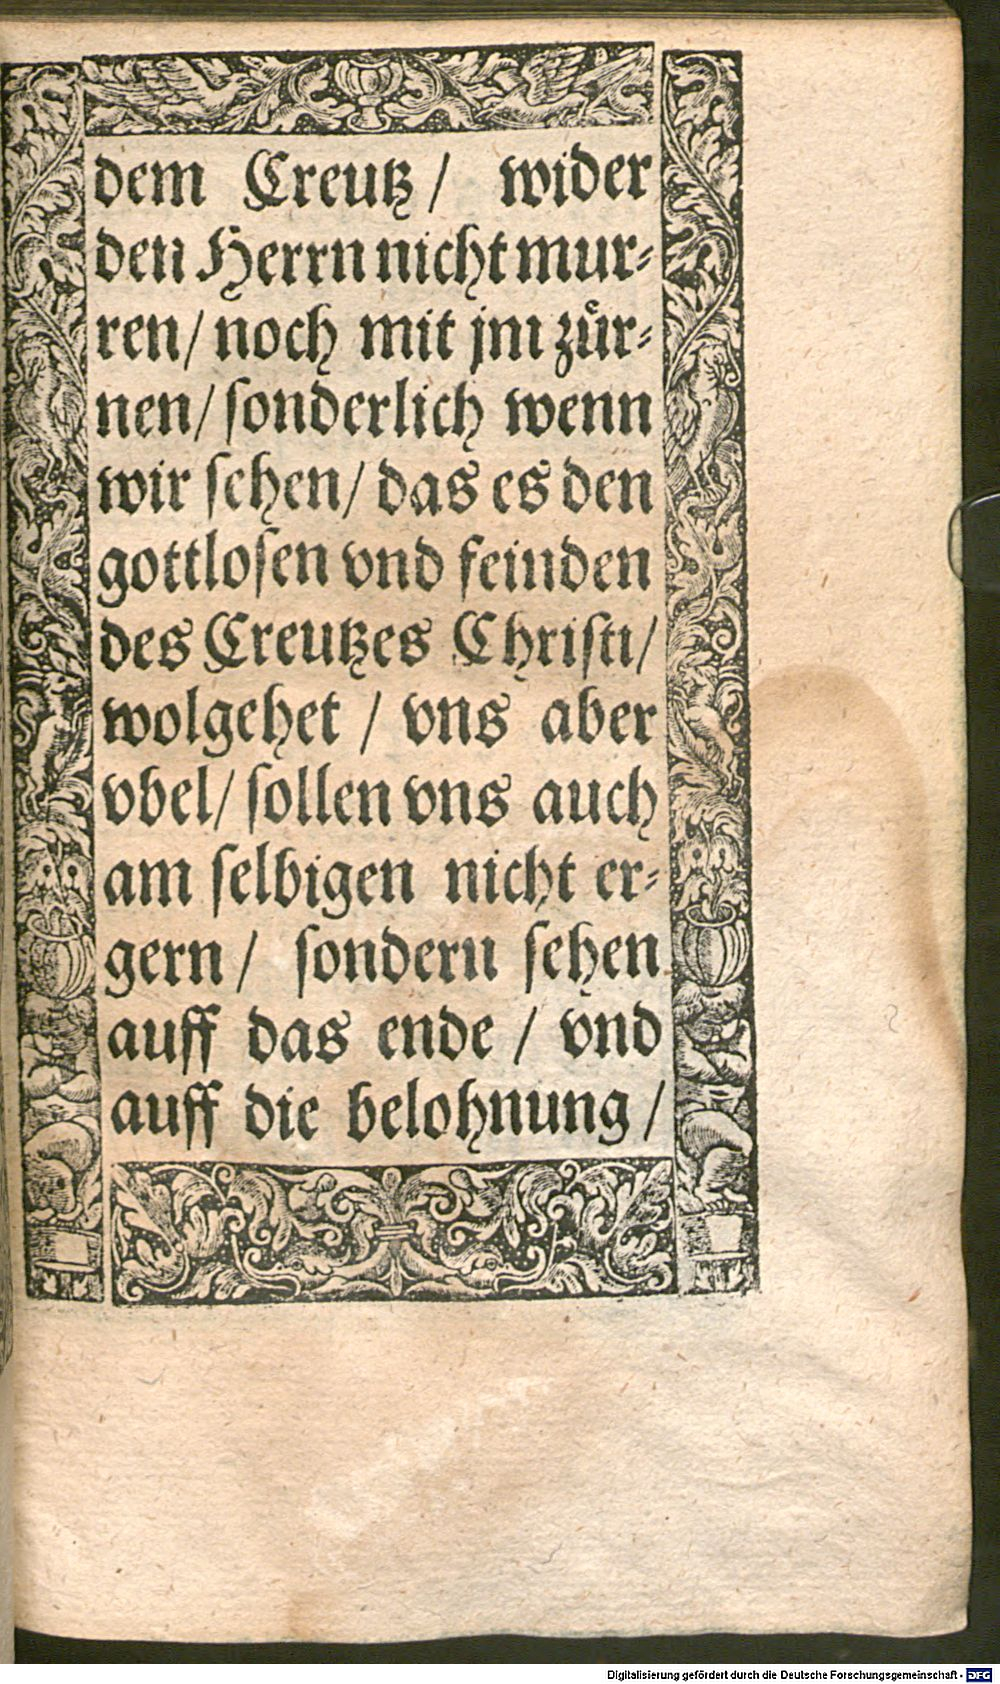 dem Creutz / wider
den Herrn nicht mur⸗
ren / noch mit jm zuͤr⸗
nen / ſonderlich wenn
wir ſehen / das es den
gottloſen vnd feinden
des Creutzes Chriſti /
wolgehet / vns aber
vbel / ſollen vns auch
am ſelbigen nicht er⸗
gern / ſondern ſehen
auff das ende / vnd
auff die belohnung /
Digitalisierung gefördert durch die Deutsche Forschungsgemeinschaft - DFG